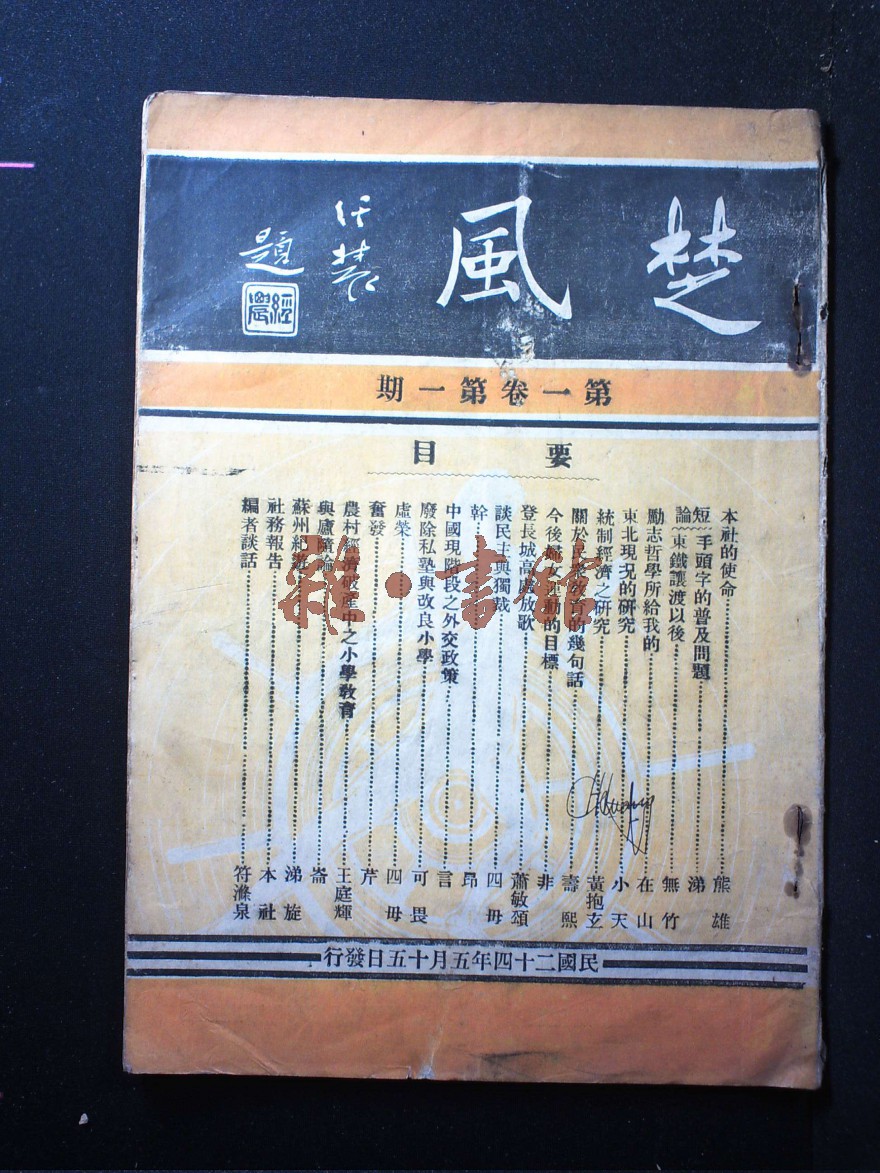 楚風
題
經農
第一卷第一期
要目
本社的使命 熊雄
短論 手頭字的普及問題 涕
東鐵讓渡以後 無竹
勵志哲學所給我的 在山
東北現況的研究 小天
統制經濟之研究 黃抱玄
關於民衆教育的幾句話 壽熙
今後婦女運動的目標 非
登長城高處放歌 蕭敏頌
談民主與獨裁 四毋
幹 昂
中國現階段之外交政策 言
廢除私塾與改良小學 可畏
虛榮 四毋
奮發 芹
農村經濟破產中之小學教育 王庭輝
與廬隨論 崙
蘇州紀遊 涕旋
社務報告 本社
編者談話 符滌泉
民國二十四年五月十五日發行
雜·書館